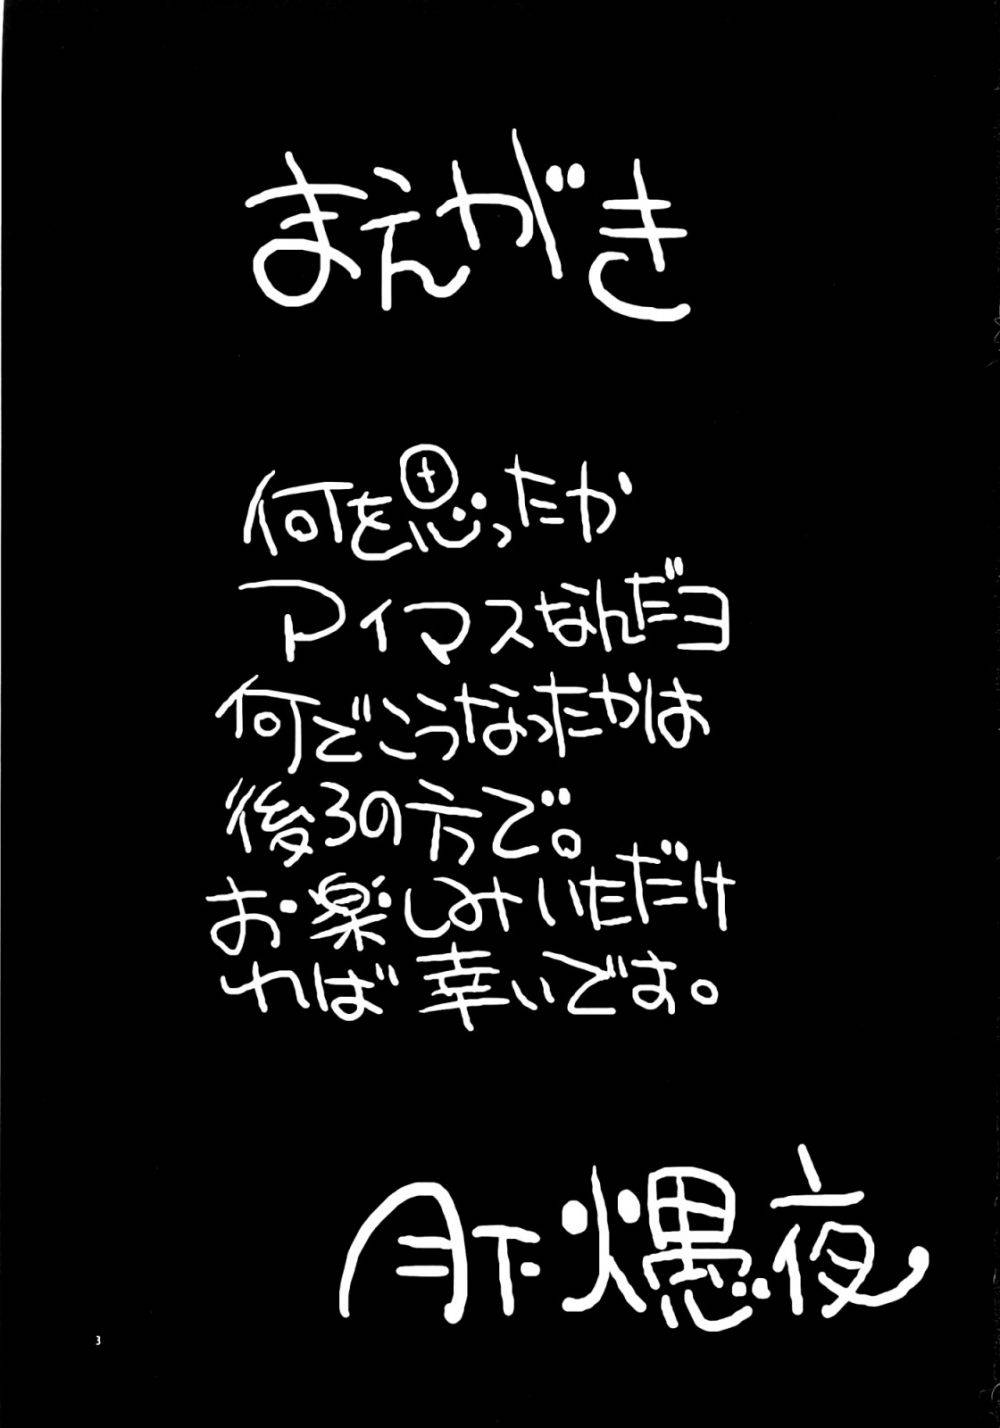 まえがき
何を思ったか
アイマスなんだヨ
何でこうなったかは
後ろの方で。
お楽しみいただけ
れば幸いです。
月下燶夜
3